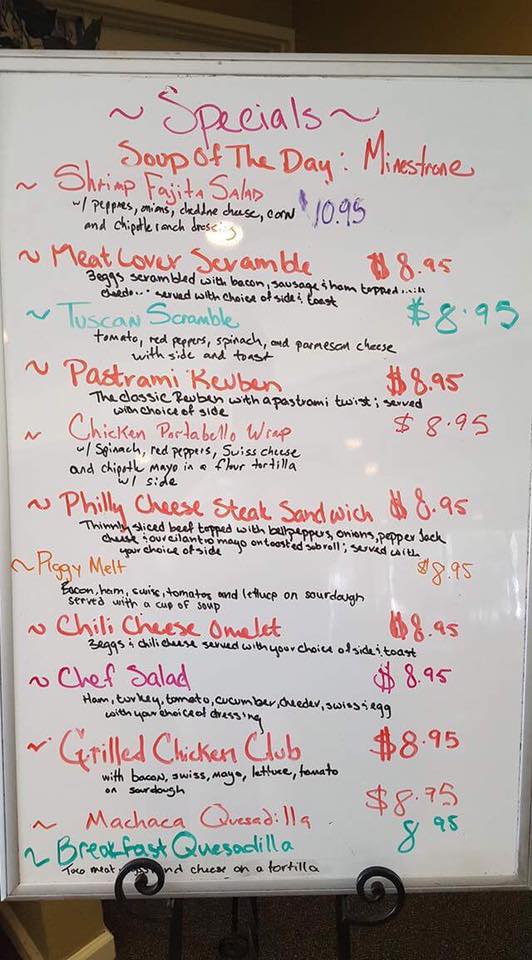 ~ Specials ~
Soup Of The Day: Minestrone
~ Shrimp Fajita Salad
w/ peppers, onions, cheddar cheese, corn $10.95
and chipotle ranch dressing
~ Meat Lover Scramble $8.95
3eggs scrambled with bacon, sausage & ham topped
served with choice of side & toast
~ Tuscan Scramble $8.95
tomato, red peppers, spinach, and parmesan cheese
with side and toast
~ Pastrami Reuben $8.95
The classic Reuben with a pastrami twist; served
with choice of side
~ Chicken Portabello Wrap $8.95
w/ Spinach, red peppers, Swiss cheese
and chipotle mayo in a flour tortilla
w/ side
~ Philly Cheese Steak Sandwich $8.95
Thinnly sliced beef topped with bell peppers, onions, pepper Jack
cheese & our cilantro mayo on toasted sub roll; served with
your choice of side
~ Piggy Melt $8.95
Bacon, ham, swiss, tomatos and lettuce on sourdough
served with a cup of soup
~ Chili Cheese Omelet $8.95
3eggs & chili cheese served with your choice of side & toast
~ Chef Salad $8.95
Ham, turkey, tomato, cucumber, cheeder, swiss & egg
with your choice of dressing
~ Grilled Chicken Club $8.95
with bacon, swiss, mayo, lettuce, tomato
on sourdough
~ Machaca Quesadilla $8.95
~ Breakfast Quesadilla 8.95
Taco meat and cheese on a tortilla